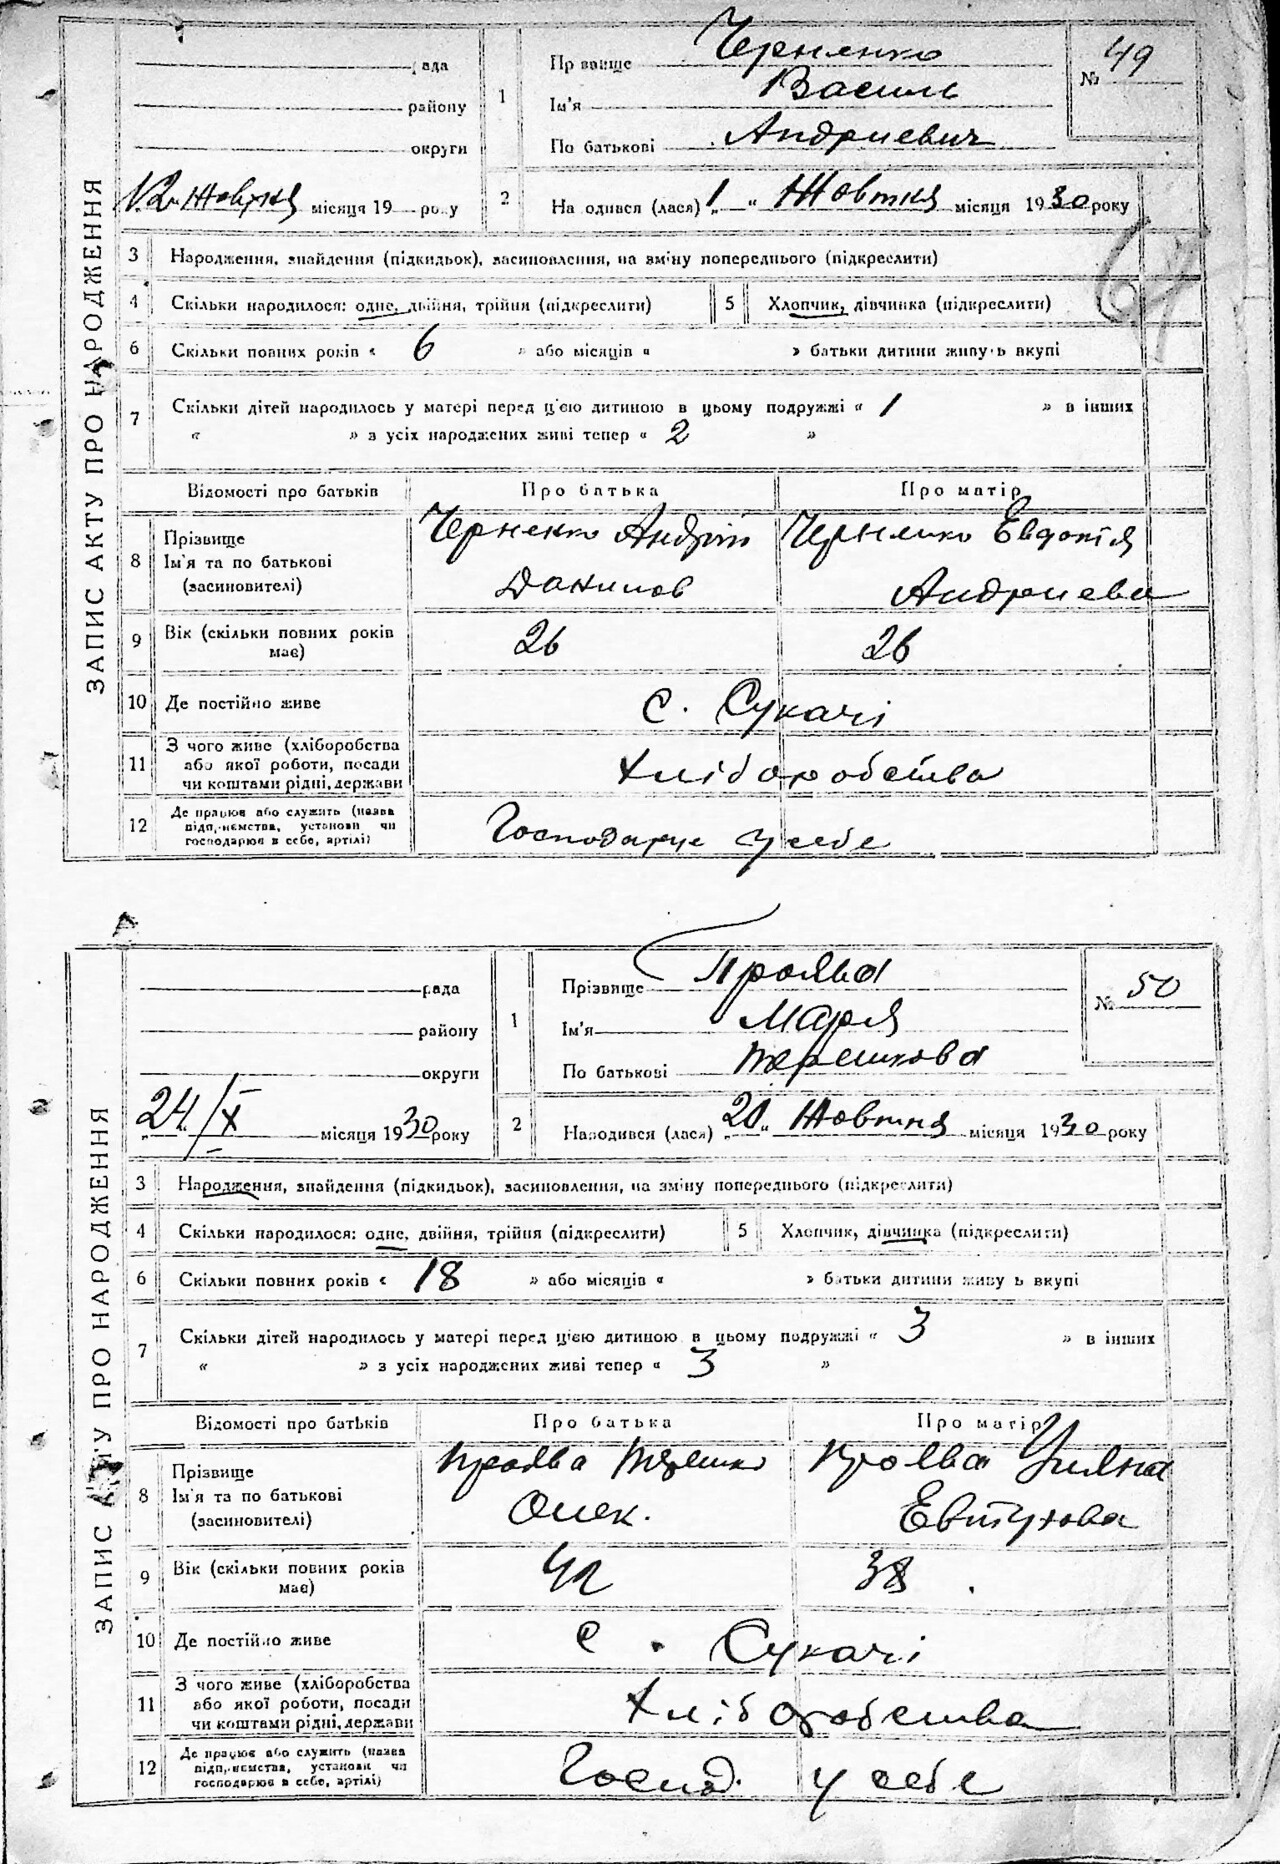 ЗАПИС АКТУ ПРО НАРОДЖЕННЯ
рада
району
округи
12 Жовтня місяця 19 року
1
Прізвище Черненко
Ім'я Василь
По батькові Андриевич
№ 49
2 Народився (лася) „1“ Жовтня місяця 1930 року
3 Народження, знайдення (підкидьок), засиновлення, на зміну попереднього (підкреслити)
4 Скільки народилося: одне, двійня, трійня (підкреслити) 5 Хлопчик, дівчинка (підкреслити)
6 Скільки повних років « 6 » або місяців « » батьки дитини живуть вкупі
7 Скільки дітей народилось у матері перед цією дитиною в цьому подружжі « 1 » в інших
« » з усіх народжених живі тепер « 2 »
Відомості про батьків Про батька Про матір
8 Прізвище Ім'я та по батькові (засиновителі)
Черненко Андрій Данилов
Черненко Евдокія Андриева
9 Вік (скільки повних років має) 26 26
10 Де постійно живе с. Сукачі
11 З чого живе (хліборобства або якої роботи, посади чи коштами рідні, держави Хліборобства
12 Де працює або служить (назва підприємства, установи чи господарює в себе, артілі) Господарює у себе
ЗАПИС АКТУ ПРО НАРОДЖЕННЯ
рада
району
округи
24/X місяця 1930 року
1
Прізвище Проява
Ім'я Марія
По батькові Терешкова
№ 50
2 Народився (лася) „20“ Жовтня місяця 1930 року
3 Народження, знайдення (підкидьок), засиновлення, на зміну попереднього (підкреслити)
4 Скільки народилося: одне, двійня, трійня (підкреслити) 5 Хлопчик, дівчинка (підкреслити)
6 Скільки повних років « 18 » або місяців « » батьки дитини живуть вкупі
7 Скільки дітей народилось у матері перед цією дитиною в цьому подружжі « 3 » в інших
« » з усіх народжених живі тепер « 3 »
Відомості про батьків Про батька Про матір
8 Прізвище Ім'я та по батькові (засиновителі)
Проява Терешко Олек.
Проява Уляна Евтухова
9 Вік (скільки повних років має) 38
10 Де постійно живе с. Сукачі
11 З чого живе (хліборобства або якої роботи, посади чи коштами рідні, держави Хліборобства
12 Де працює або служить (назва підприємства, установи чи господарює в себе, артілі) Господ. у себе